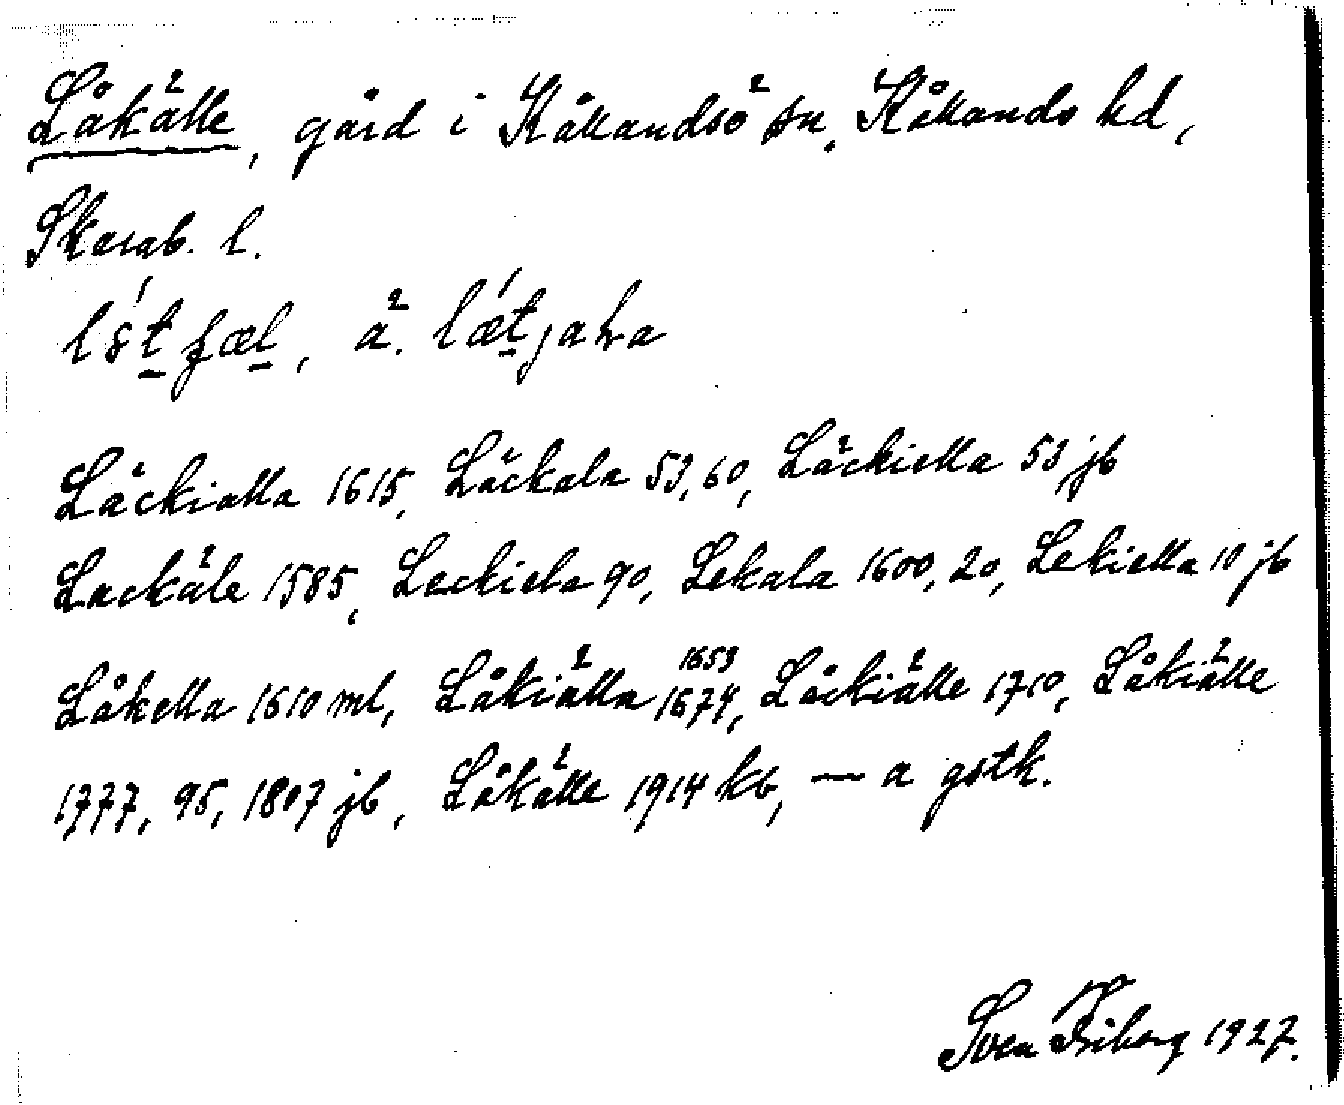 Låkälle, gård i Kållandsö sn, Kållands hd,
Skarab. l.
ä.
Läckialla 1615, Läckala 53, 60, Läckiella 53 jb
Lackäle 1585, Leckiela 90, Lekala 1600, 20, Lekiella 10 jb
Låkella 1610 ml, Låkiälla 1653 1674, Låckiälle 1710, Låkiälle
1777, 95, 1807 jb, Låkälle 1914 kb, — a gstk.
Sven Friberg 1927.